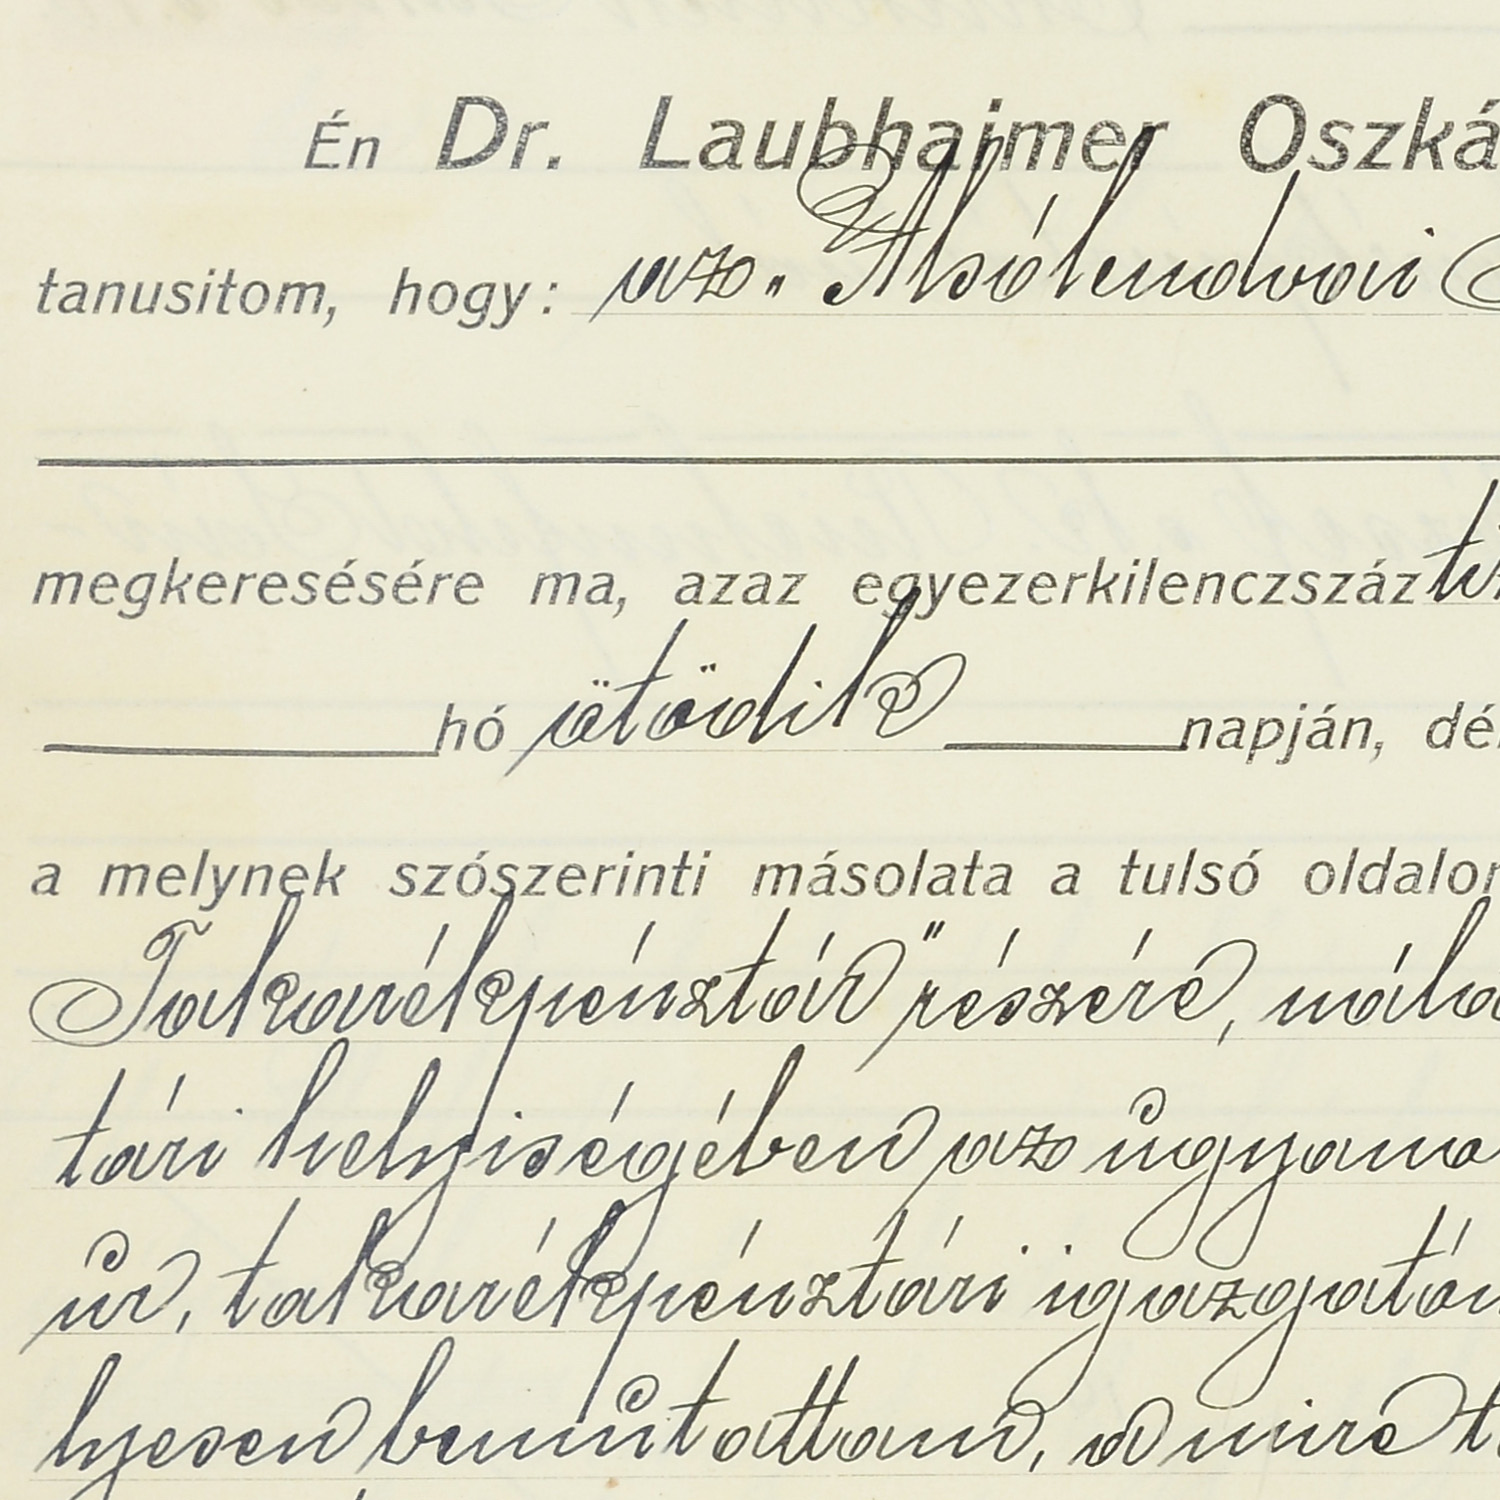 Én Dr. Laubhaimer Oszká
tanusitom, hogy: az „Alsólendvai
megkeresésére ma, azaz egyezerkilenczszáz
hó ötödik napján, dél
a melynek szószerinti másolata a tulsó oldalon
Takarékpénztár" részére, nála
tári helyiségében az ugyana
úr, takarékpénztári igazgatón
lyesen bemutattam, a mire t